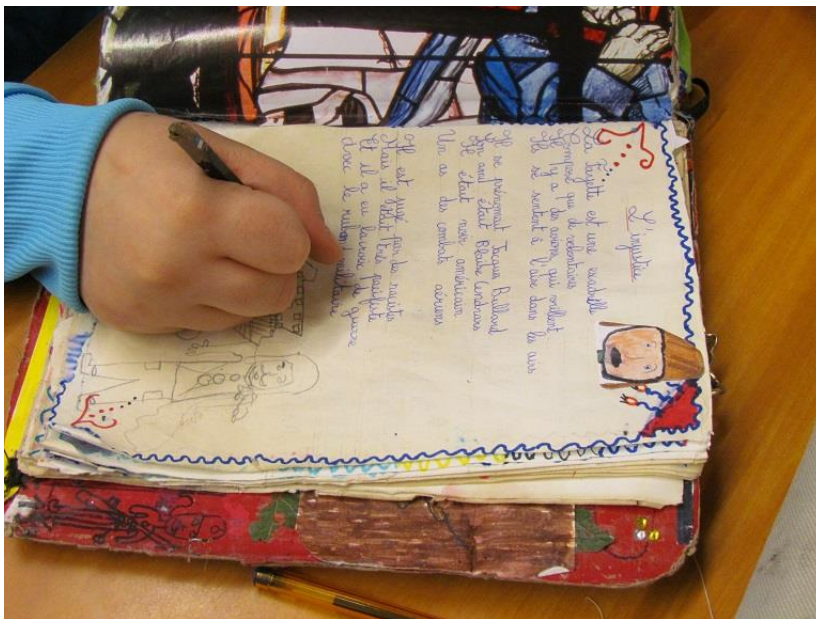 L'injustice
La Fayette est une escadrille
Composé que de volontaires
Il y a des avions qui vrillent
Ils se sentent à l'aise dans les airs
Il se prénommait Jacques Bullard
Son ami était Blaise Cendrars
Il était noir américain
Un as des combats aériens
Il est jugé par des racistes
Mais il était très pacifiste
Et il a eu la croix de guerre
Avec le ruban militaire